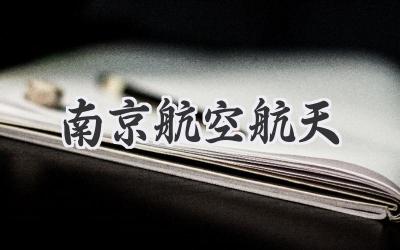 南京航空航天